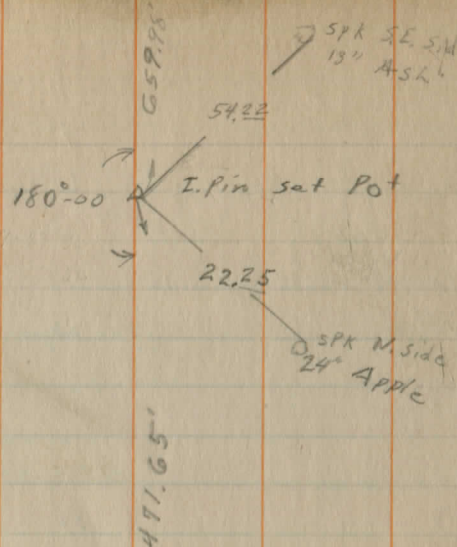 659.98'
SPK S.E. Sid
13" Ash
54.22
180°-00 I.Pin set POT
22.25
SPK N. Side
24" Apple
471.65'